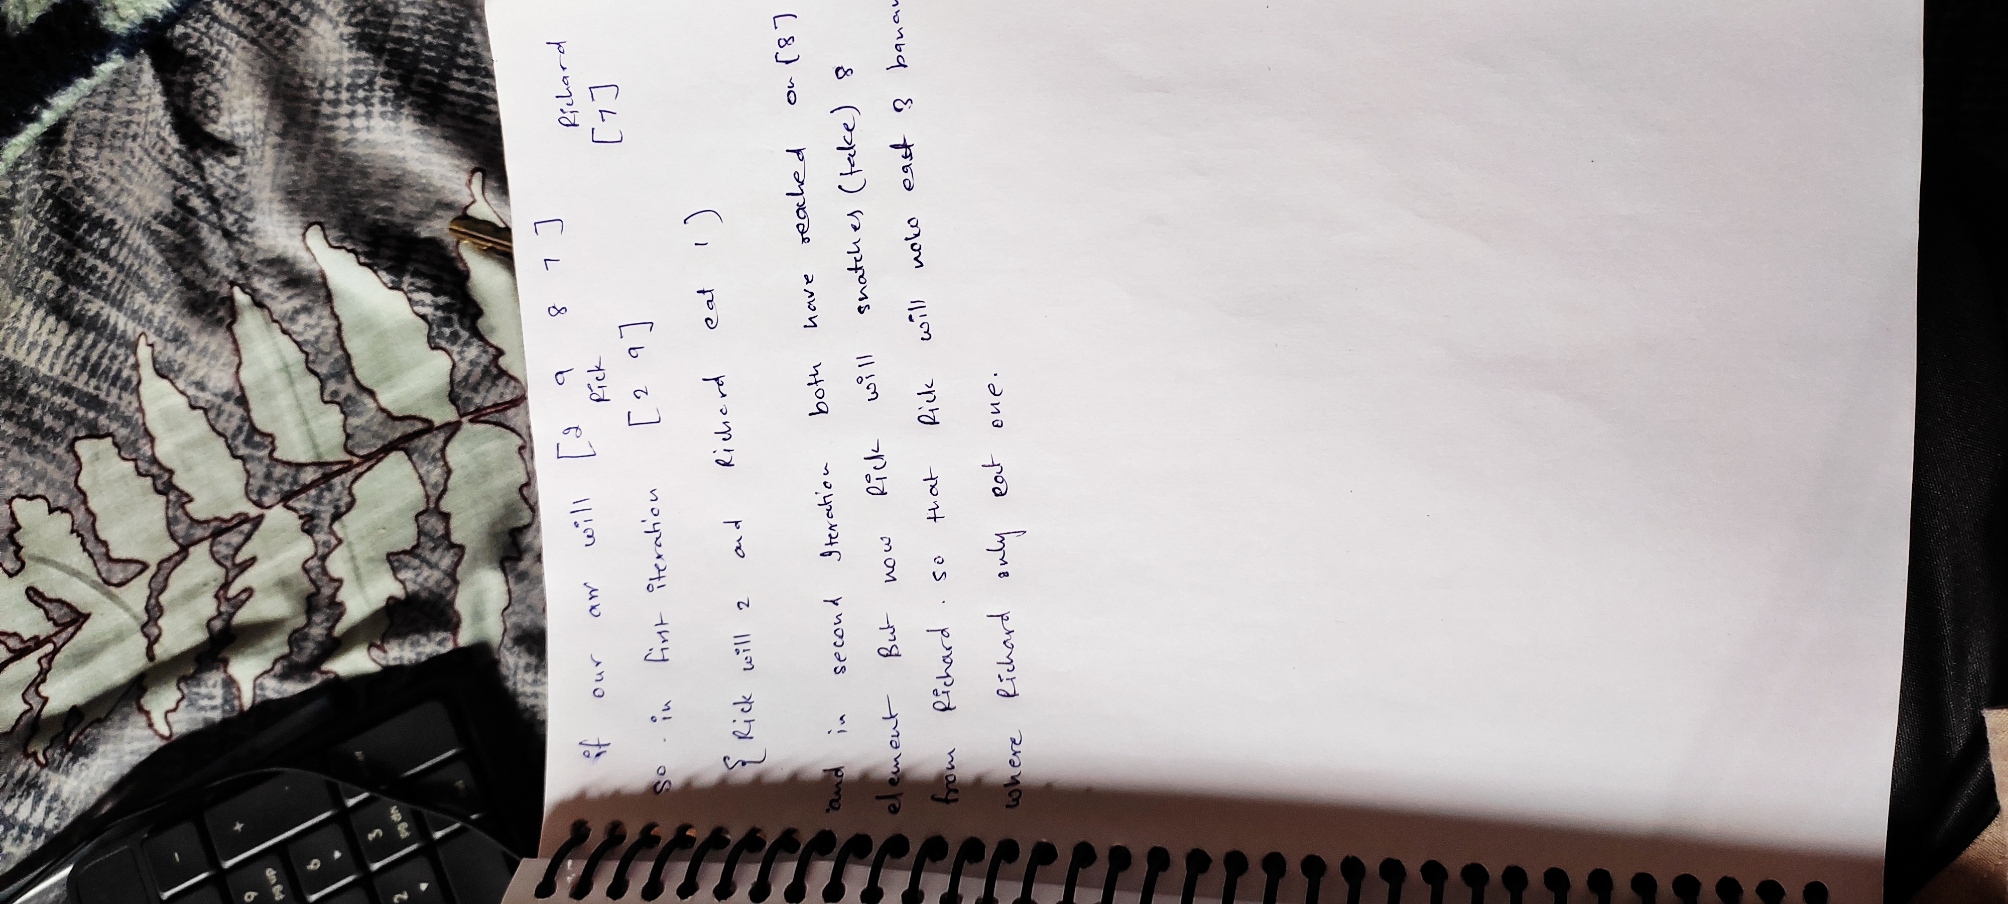 -
+
9
pg up
6
3
pg dn
2
if our arr will [2 9 8 7]
Rick Richard
so. in first iteration [2 9] [7]
{ Rick will 2 and Richard eat 1 )
and in second Iteration both have reached on [8]
element But now Rick will snatches (take) 8
from Richard. so that Rick will east 3
where Richard only eat one.